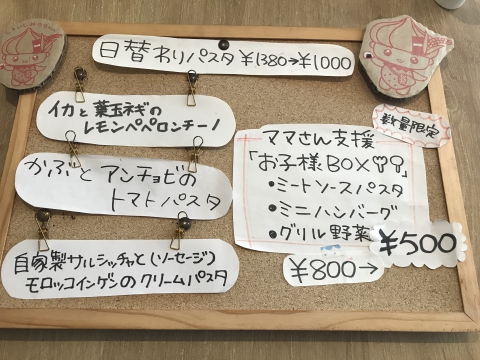 日替わりパスタ ¥1380→¥1000
イカと葉玉ネギの
レモンペペロンチーノ
かぶとアンチョビの
トマトパスタ
自家製サルシッチャと(ソーセージ)
モロッコインゲンのクリームパスタ
数量限定
ママさん支援
「お子様BOX」
・ミートソースパスタ
・ミニハンバーグ
・グリル野菜
¥800→
¥500